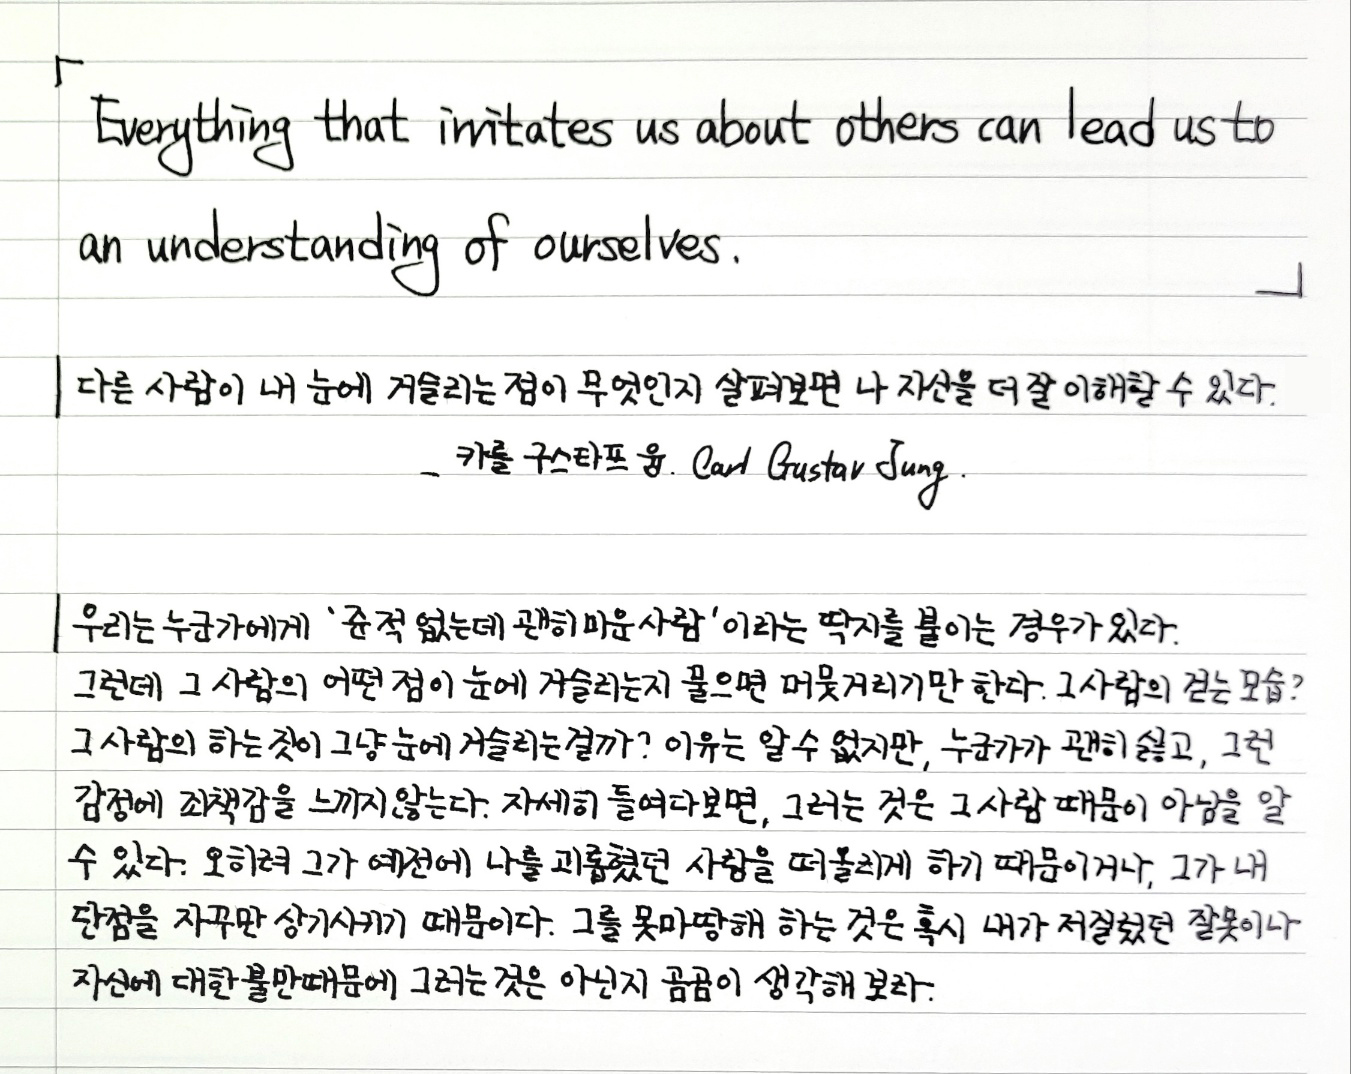 「
Everything that irritates us about others can lead us to
an understanding of ourselves.
」
다른 사람이 내 눈에 거슬리는 점이 무엇인지 살펴보면 나 자신을 더 잘 이해할 수 있다.
_ 카를 구스타프 융. Carl Gustav Jung.
우리는 누군가에게 '준 적 없는데 괜히 미운 사람'이라는 딱지를 붙이는 경우가 있다.
그런데 그 사람의 어떤 점이 눈에 거슬리는지 물으면 머뭇거리기만 한다. 그 사람의 걷는 모습?
그 사람의 하는 짓이 그냥 눈에 거슬리는걸까? 이유는 알 수 없지만, 누군가가 괜히 싫고, 그런
감정에 죄책감을 느끼지 않는다. 자세히 들여다보면, 그러는 것은 그 사람 때문이 아님을 알
수 있다. 오히려 그가 예전에 나를 괴롭혔던 사람을 떠올리게 하기 때문이거나, 그가 내
단점을 자꾸만 상기시키기 때문이다. 그를 못마땅해 하는 것은 혹시 내가 저질렀던 잘못이나
자신에 대한 불만때문에 그러는 것은 아닌지 곰곰이 생각해 보라.